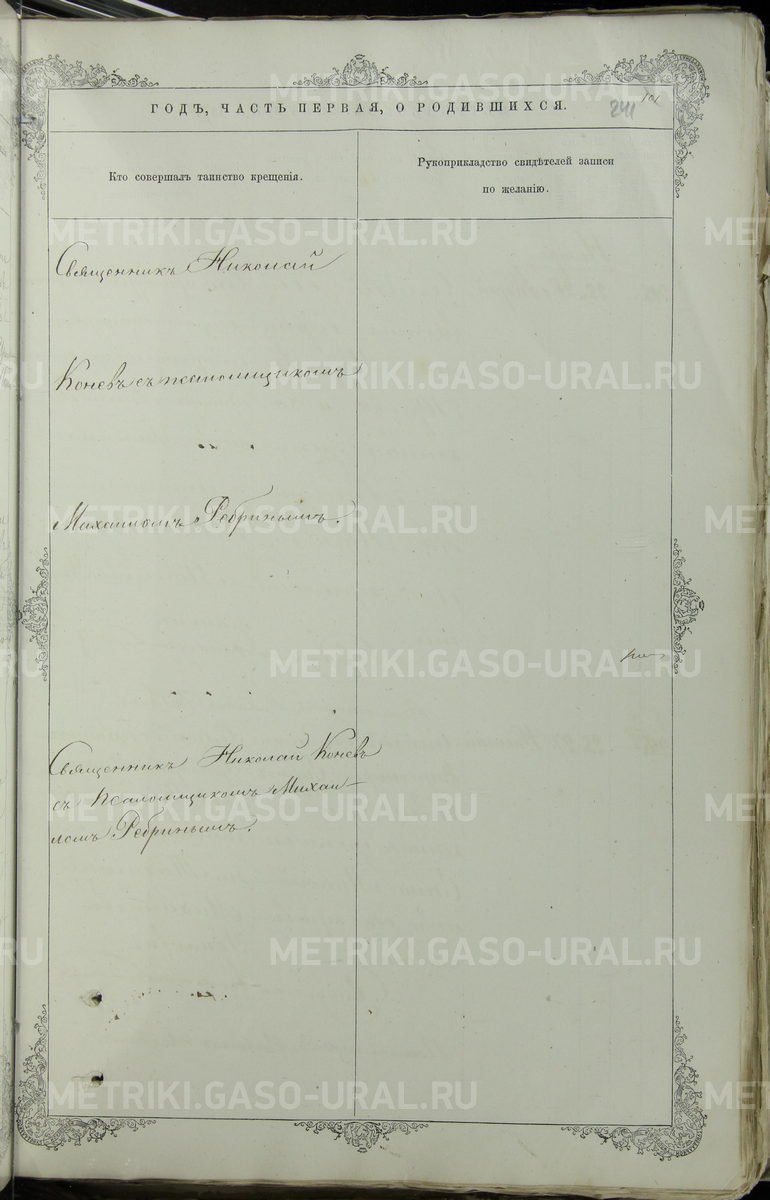 ГОДЪ, ЧАСТЬ ПЕРВАЯ, О РОДИВШИХСЯ.
241
101
Кто совершалъ таинство крещенія.
Рукоприкладство свидѣтелей записи
по желанію.
Священникъ Николай
Коневъ съ псаломщикомъ
Михаиломъ Ребринымъ.
Священникъ Николай Коневъ
съ псаломщикомъ Михаи-
ломъ Ребринымъ.
METRIKI.GASO-URAL.RU